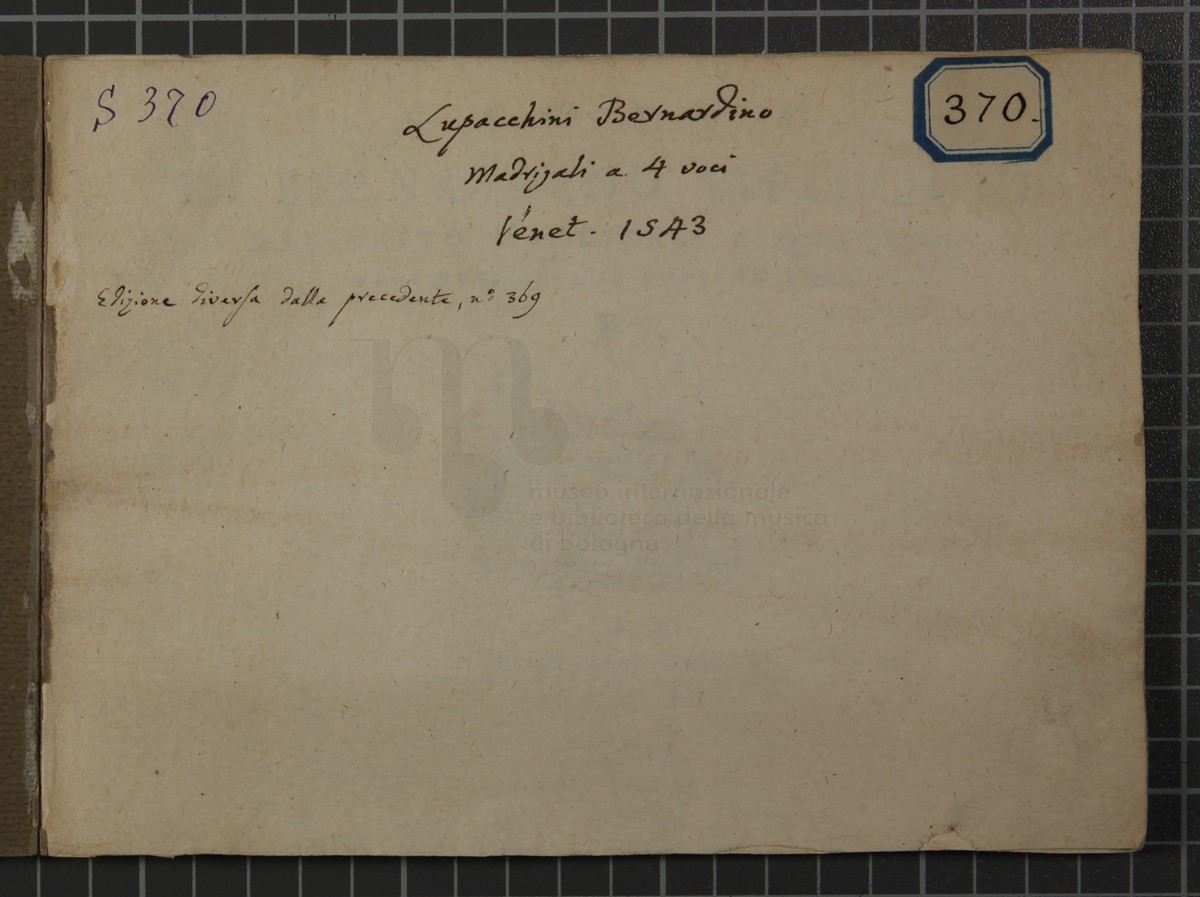 S 370
370.
Lupacchini Bernardino
Madrigali a 4 voci
Venet. 1543
Edizione diversa dalla precedente, nº 369
museo internazionale
e biblioteca della musica
di bologna